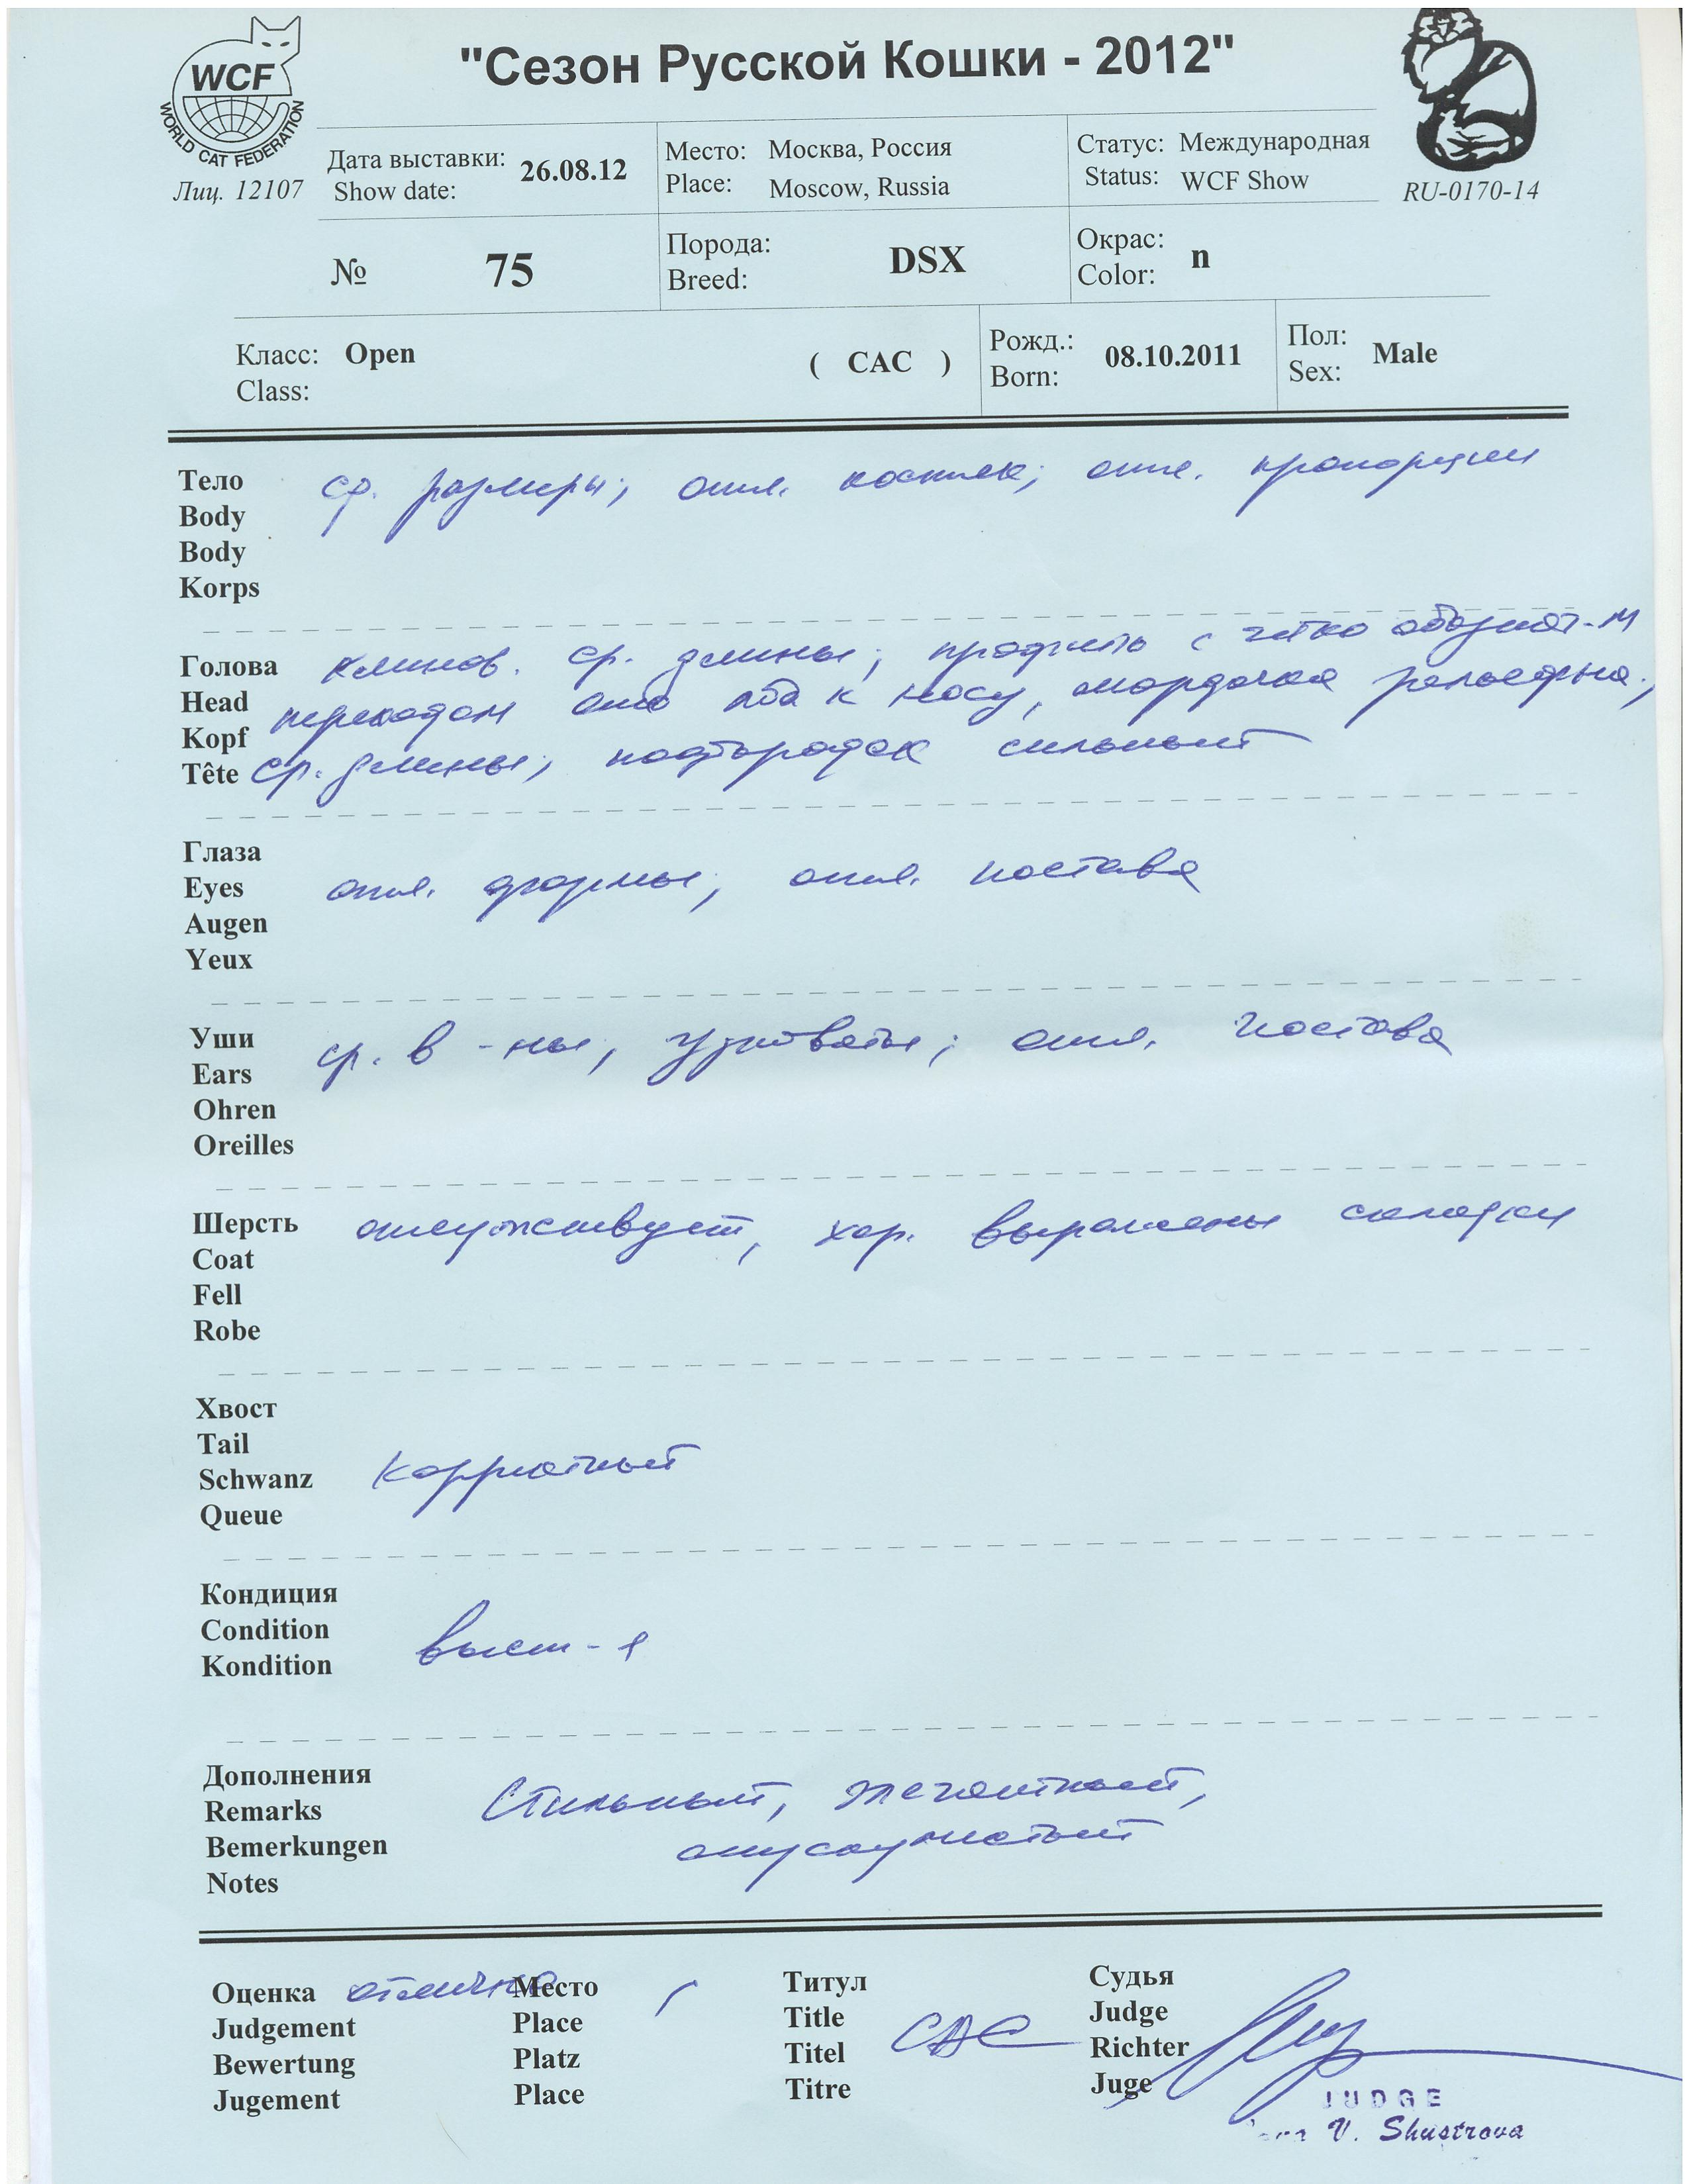 "Сезон Русской Кошки - 2012"
WCF
WORLD CAT FEDERATION
Лиц. 12107
Дата выставки: 26.08.12
Show date:
Место: Москва, Россия
Place: Moscow, Russia
Статус: Международная
Status: WCF Show
RU-0170-14
№ 75
Порода:
Breed: DSX
Окрас:
Color: n
Класс: Open ( CAC )
Class:
Рожд.: 08.10.2011
Born:
Пол: Male
Sex:
Тело ср. размеры; отл. костяк; отл. пропорции
Body
Body
Korps
Голова клинов. ср. длины; профиль с четко обознач-м
Head переходом ото лба к носу, мордочка рельефна.,
Kopf
Tête ср. длины; подбородок сильный
Глаза
Eyes отл. формы; отл. постава
Augen
Yeux
Уши ср. в-ны, ; отл. постава
Ears
Ohren
Oreilles
Шерсть отсутствует, хор. выражены складки
Coat
Fell
Robe
Хвост
Tail
Schwanz корректный
Queue
Кондиция
Condition выст-я
Kondition
Дополнения
Remarks Стильный, элегантный,
Bemerkungen
Notes
Оценка отлично
Judgement
Bewertung
Jugement
Место
Place
Platz
Place
Титул
Title CAC
Titel
Titre
Судья
Judge
Richter
Juge
JUDGE
V. Shustrova